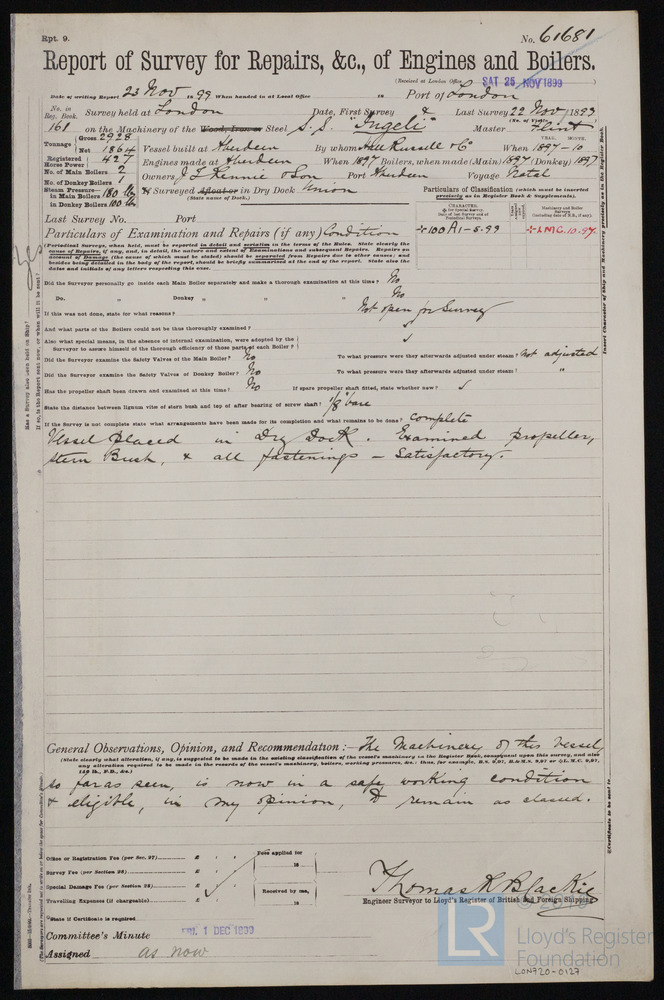 Rpt. 9.
No. 61681
Report of Survey for Repairs, &c., of Engines and Boilers.
(Received at London Office SAT 25 NOV 1899)
Date of writing Report 23 Nov 1899 When handed in at Local Office 18 Port of London
No. in Reg. Book. Survey held at London Date, First Survey & Last Survey 22 Nov 1899
161 on the Machinery of the Wood, Iron or Steel S.S. "Ingeli" Master Flint
(No. of Visits)
Tonnage Gross 2928 Net 1864 Vessel built at Aberdeen By whom Hall Russell & Co When 1897-10
YEAR. MONTH.
Registered Horse Power 427 Engines made at Aberdeen When 1897 Boilers, when made (Main) 1897 (Donkey) 1897
No. of Main Boilers 2 Owners J T Rennie & Son Port Aberdeen Voyage Natal
No. of Donkey Boilers 1
Steam Pressure in Main Boilers 180 lb If Surveyed Afloat or in Dry Dock Union
in Donkey Boilers 100 lb (State name of Dock.)
Particulars of Classification (which must be inserted precisely as in Register Book & Supplements).
CHARACTER.
+100A1-5.99
+LMC.10.97
Last Survey No. Port
Particulars of Examination and Repairs (if any) Condition
(Periodical Surveys, when held, must be reported in detail and seriatim in the terms of the Rules. State clearly the
cause of Repairs, if any, and, in detail, the nature and extent of Examinations and subsequent Repairs. Repairs on
account of Damage (the cause of which must be stated) should be separated from Repairs due to other causes; and
besides being detailed in the body of the report, should be briefly summarized at the end of the report. State also the
dates and initials of any letters respecting this case.
Did the Surveyor personally go inside each Main Boiler separately and make a thorough examination at this time? No
Do. " Donkey " " " No
If this was not done, state for what reasons? Not open for Survey
And what parts of the Boilers could not be thus thoroughly examined?
Also what special means, in the absence of internal examination, were adopted by the
Surveyor to assure himself of the thorough efficiency of those parts of each Boiler?
Did the Surveyor examine the Safety Valves of the Main Boiler? No To what pressure were they afterwards adjusted under steam? Not adjusted
Did the Surveyor examine the Safety Valves of Donkey Boiler? No To what pressure were they afterwards adjusted under steam? "
Has the propeller shaft been drawn and examined at this time? No If spare propeller shaft fitted, state whether new?
State the distance between lignum vitæ of stern bush and top of after bearing of screw shaft? 1/8" bare
If the Survey is not complete state what arrangements have been made for its completion and what remains to be done? Complete
Vessel placed in Dry Dock. Examined propeller,
stern Bush, & all fastenings – Satisfactory.
General Observations, Opinion, and Recommendation:— The Machinery of this Vessel,
(State clearly what alteration, if any, is suggested to be made in the existing classification of the vessel's machinery in the Register Book, consequent upon this survey, and also
any alteration required to be made in the records of the vessel's machinery, boilers, working pressures, &c.: thus, for example, B.S. 9,97, B.&M.S. 9,97 or L.M.C. 9,97,
140 lb., F.D., &c.)
so far as seen, is now in a safe working condition
& eligible, in my opinion, to remain as classed.
Office or Registration Fee (per Sec. 27) £ Fees applied for
Survey Fee (per Section 28) £ 18
Special Damage Fee (per Section 28) £ Received by me,
Travelling Expenses (if chargeable) £ 18
Thomas R Blackie
Engineer Surveyor to Lloyd's Register of British and Foreign Shipping.
State if Certificate is required
Committee's Minute FRI. 1 DEC 1899
Assigned as now
Yes
LR
© 2018
Lloyd's Register
Foundation
LON720-0127